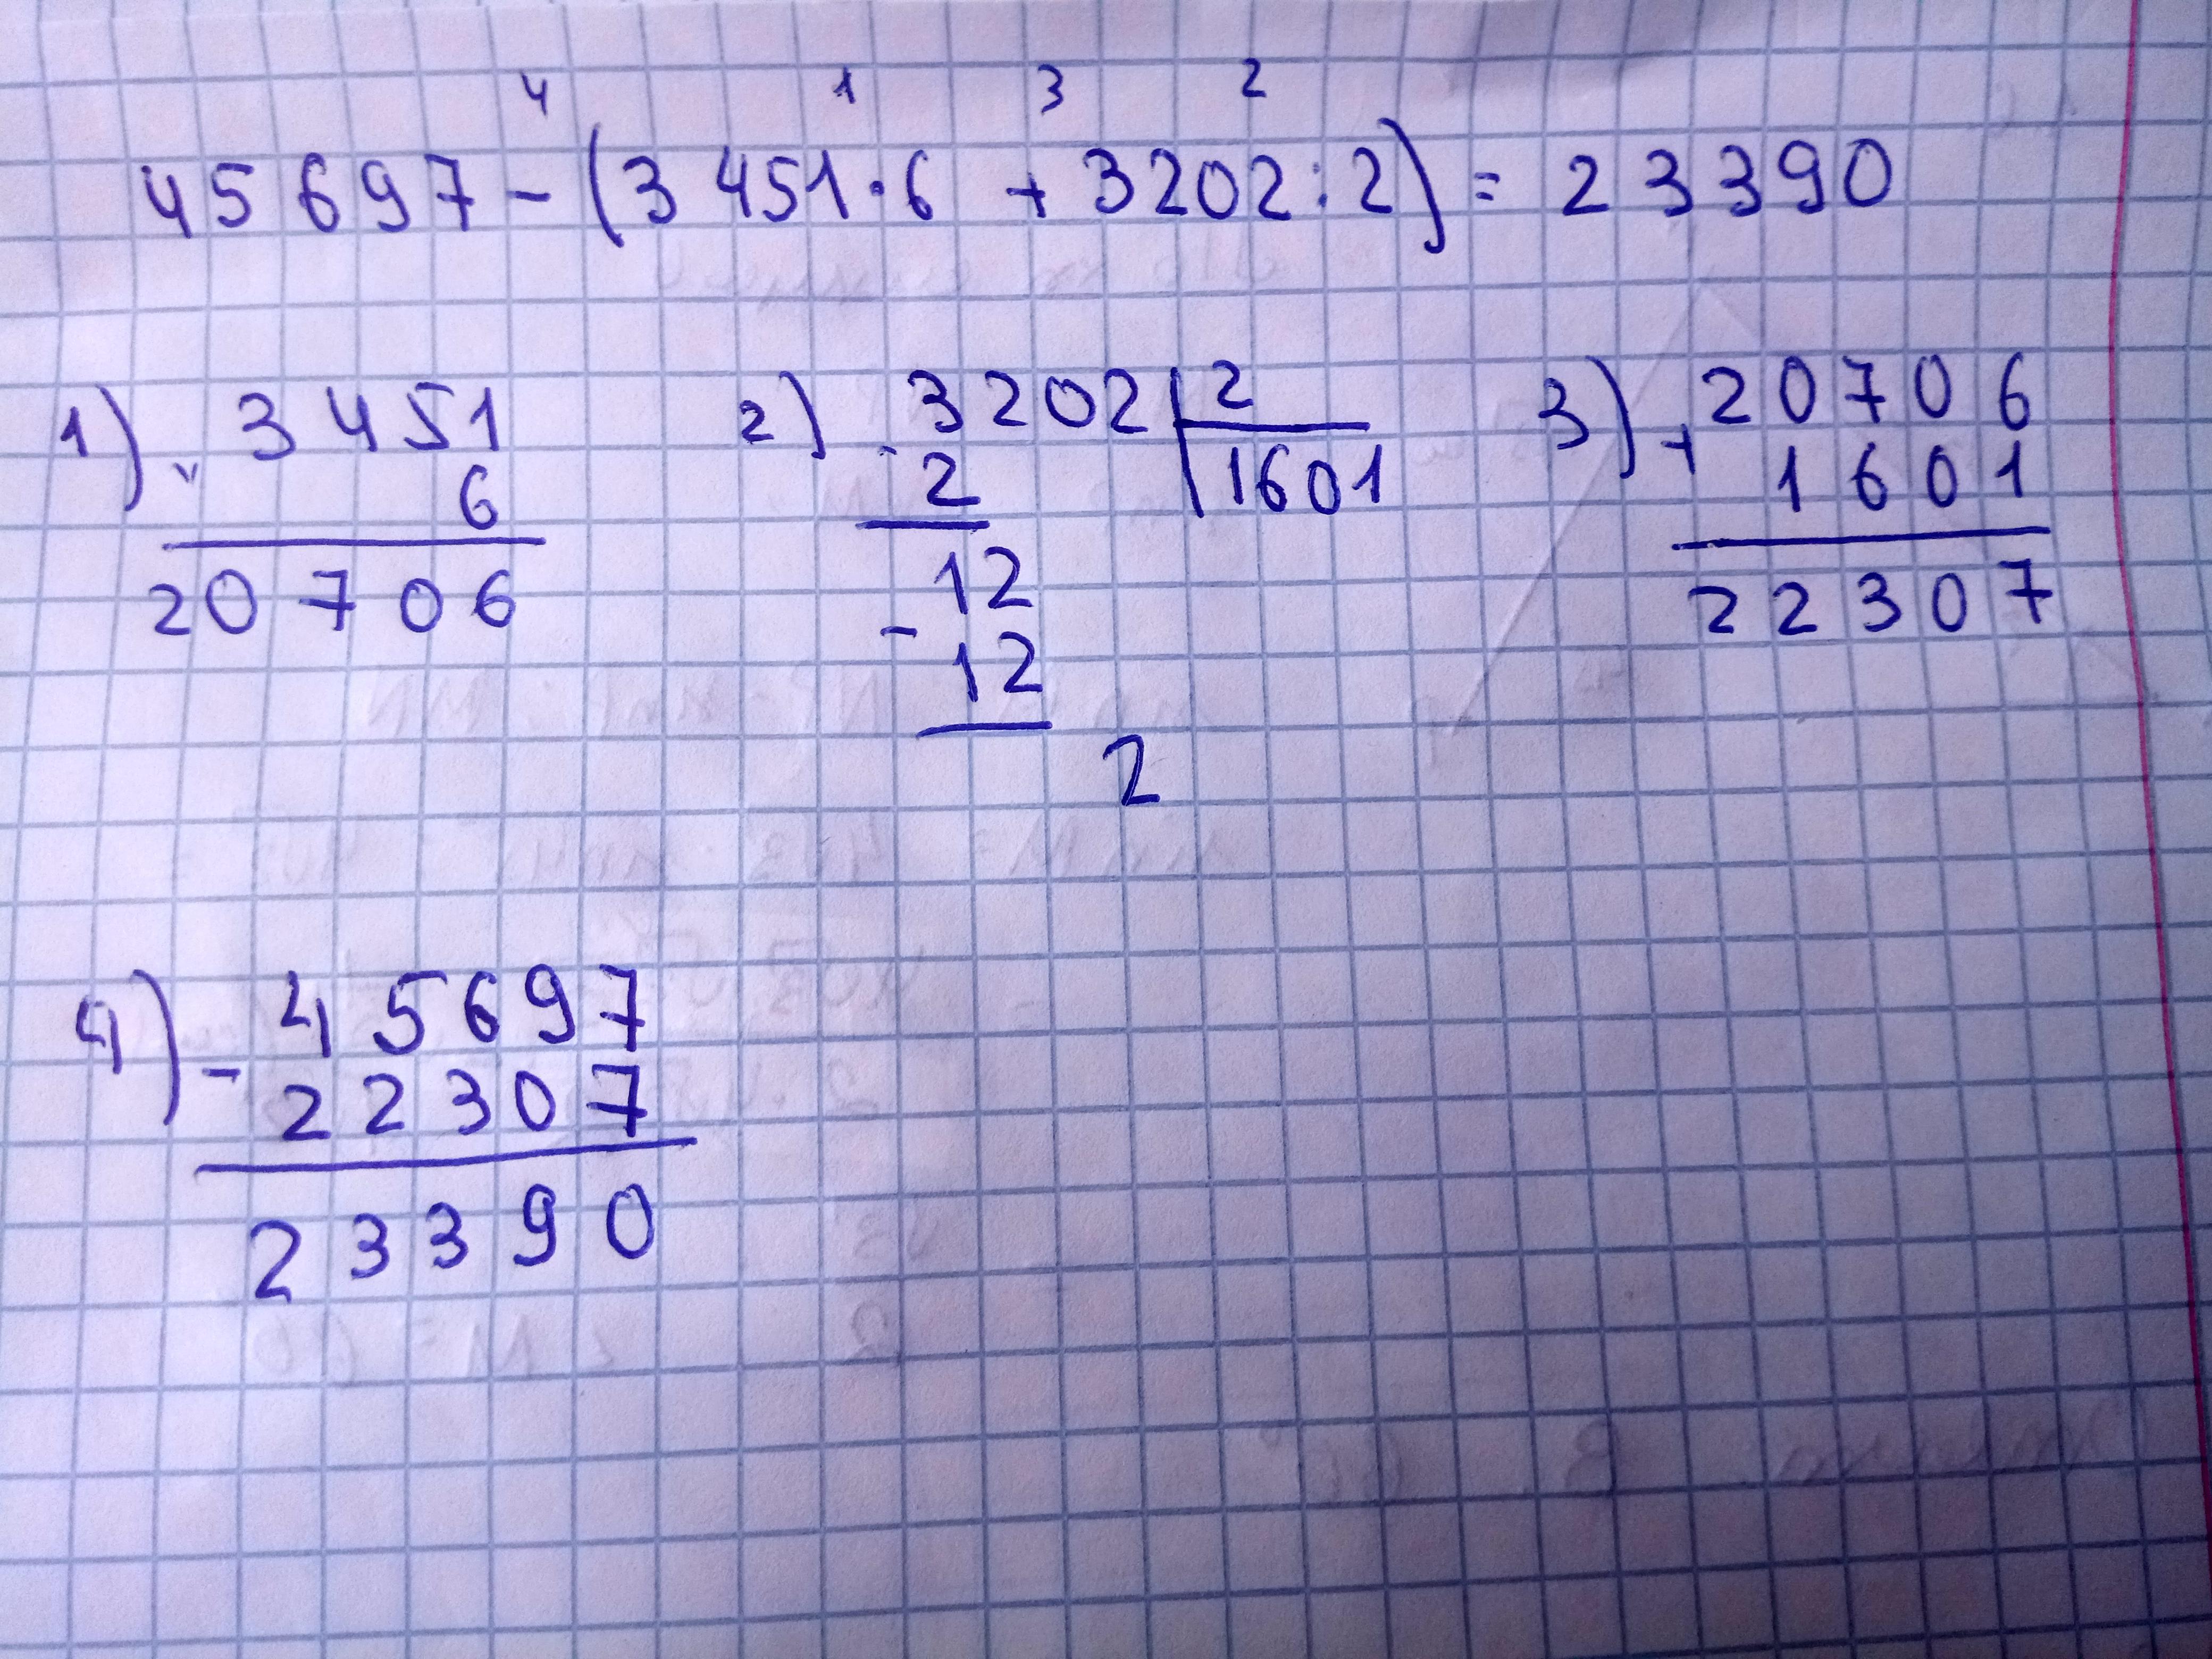 4 1 3 2
45697-(3451·6+3202:2)=23390
1) × 3451
6
20706
2) - 3202 | 2
2 | 1601
12
- 12
2
3) + 20706
1601
22307
4) - 45697
22307
23390